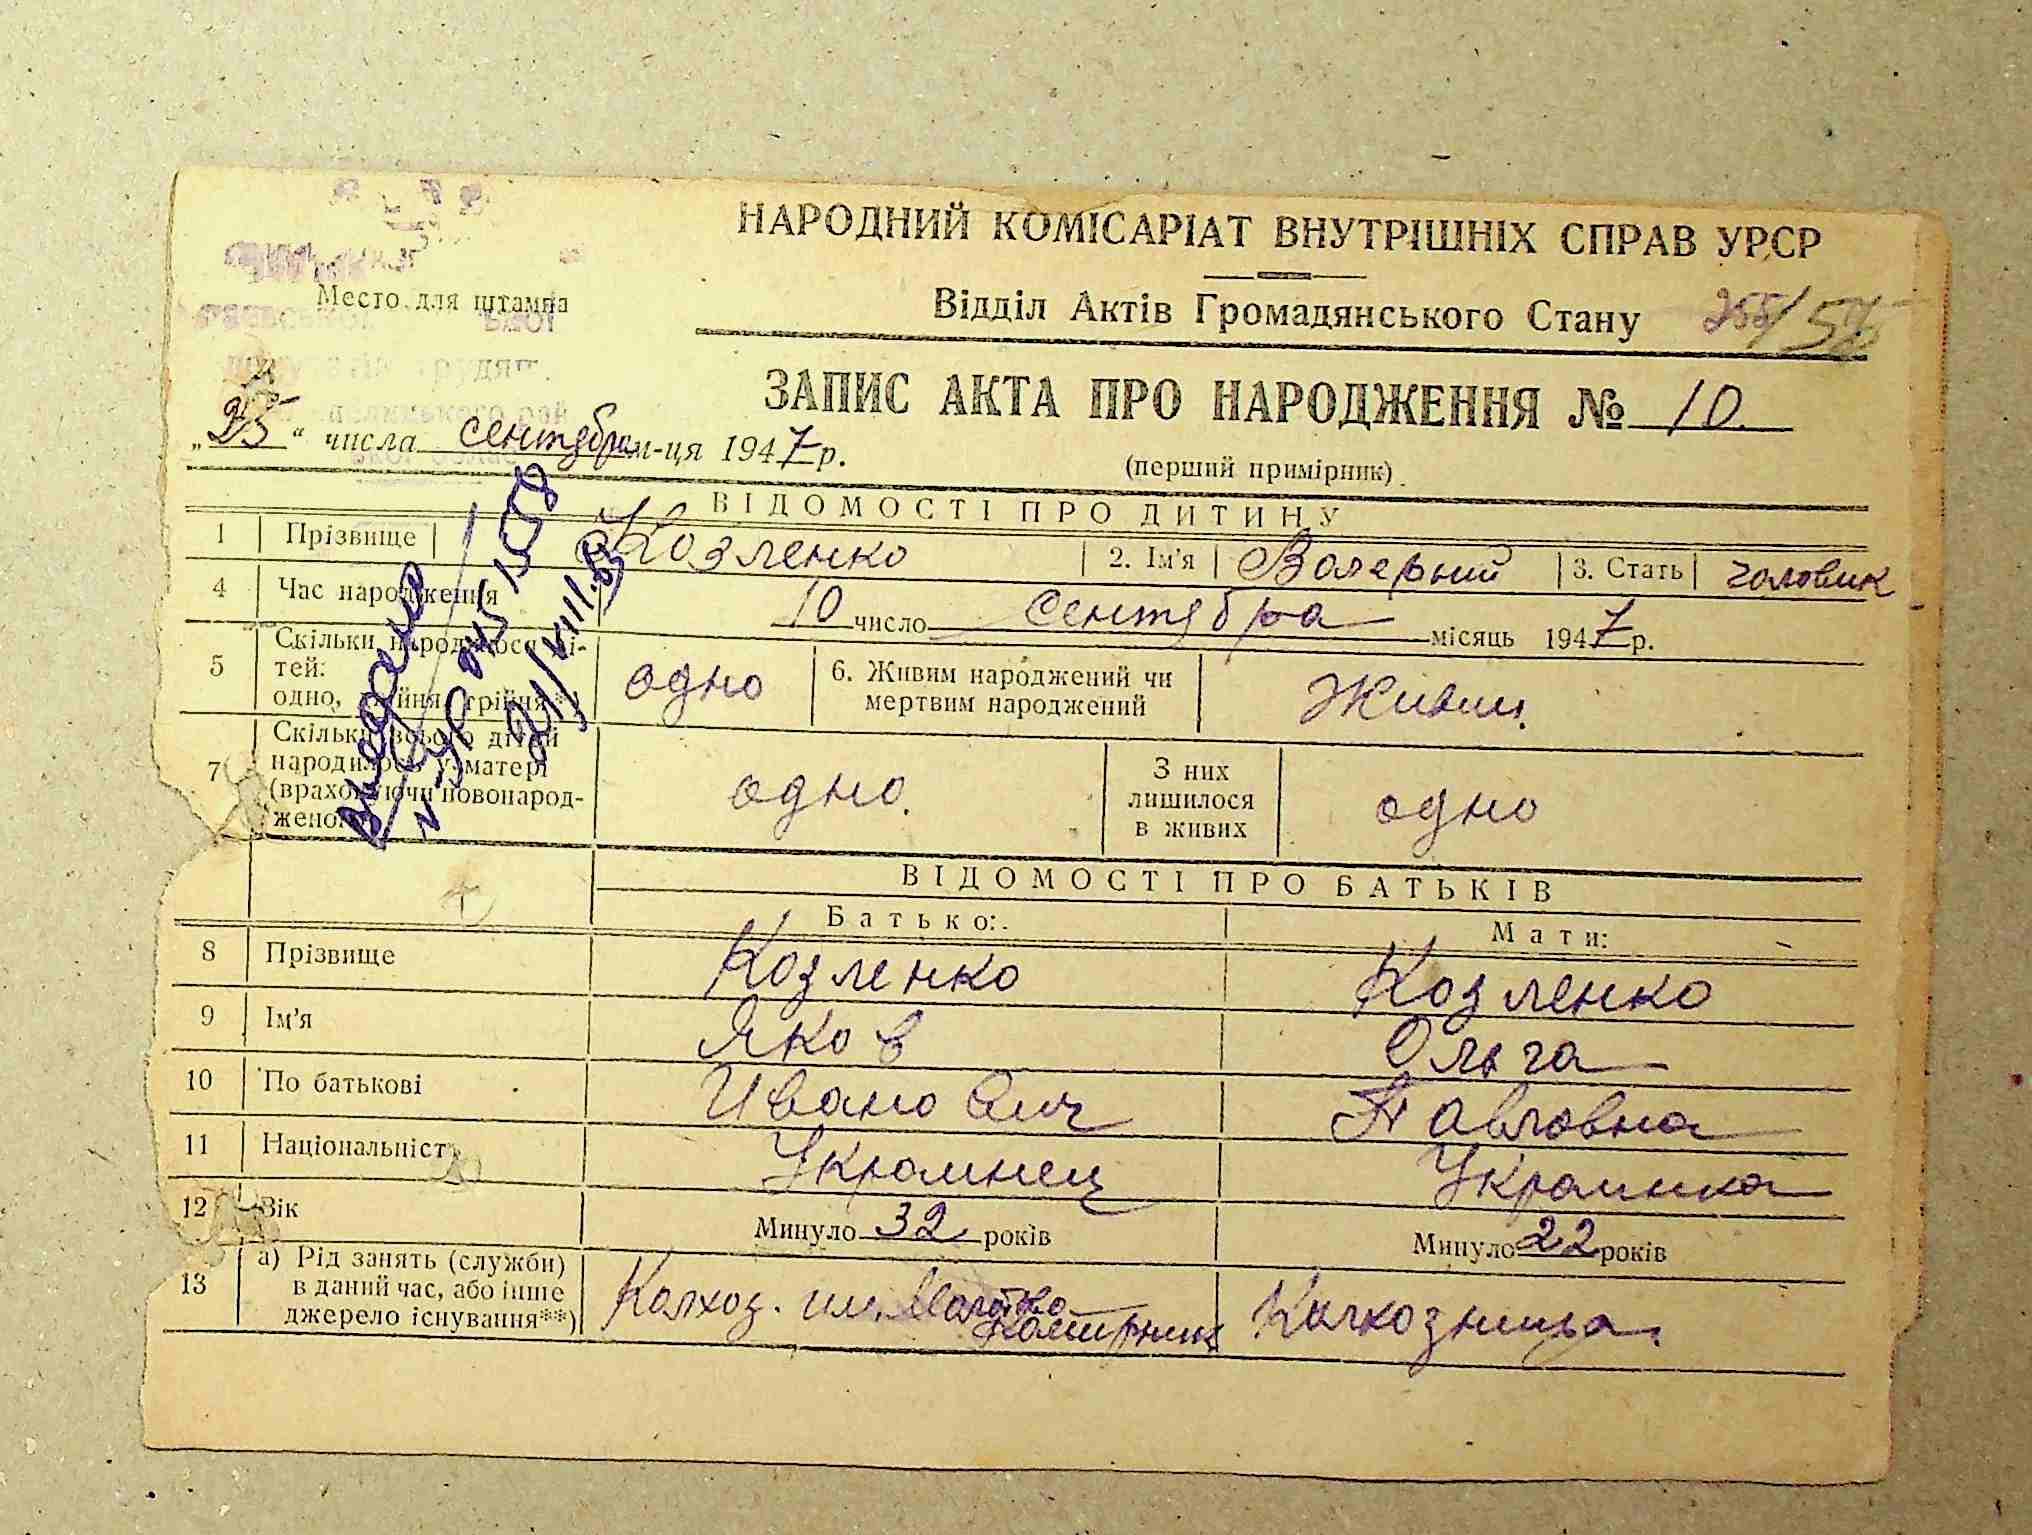 НАРОДНИЙ КОМІСАРІАТ ВНУТРІШНІХ СПРАВ УРСР
Место для штампа
Відділ Актів Громадянського Стану
ЗАПИС АКТА ПРО НАРОДЖЕННЯ № 10.
„25“ числа сентября м-ця 1947 р.
(перший примірник)
ВІДОМОСТІ ПРО ДИТИНУ
1 Прізвище Козленко 2. Ім'я Валерий 3. Стать чоловик
4 Час народження 10 число сентября місяць 1947 р.
5 Скільки народилося ді-
тей:
одно, двійня, трійня**) одно 6. Живим народжений чи
мертвим народжений Живим.
7 Скільки всього дітей
народилось у матері
(враховуючи новонарод-
женого) одно. З них
лишилося
в живих одно
Видано
21/VIII.63
ВІДОМОСТІ ПРО БАТЬКІВ
Батько: Мати:
8 Прізвище Козленко Козленко
9 Ім'я Яков Ольга
10 По батькові Иванович Павловна
11 Національніст Украинец Украинка
12 Вік Минуло 32 років Минуло 22 років
13 а) Рід занять (служби)
в даний час, або інше
джерело існування**)
Колхоз. им. Колхозница.